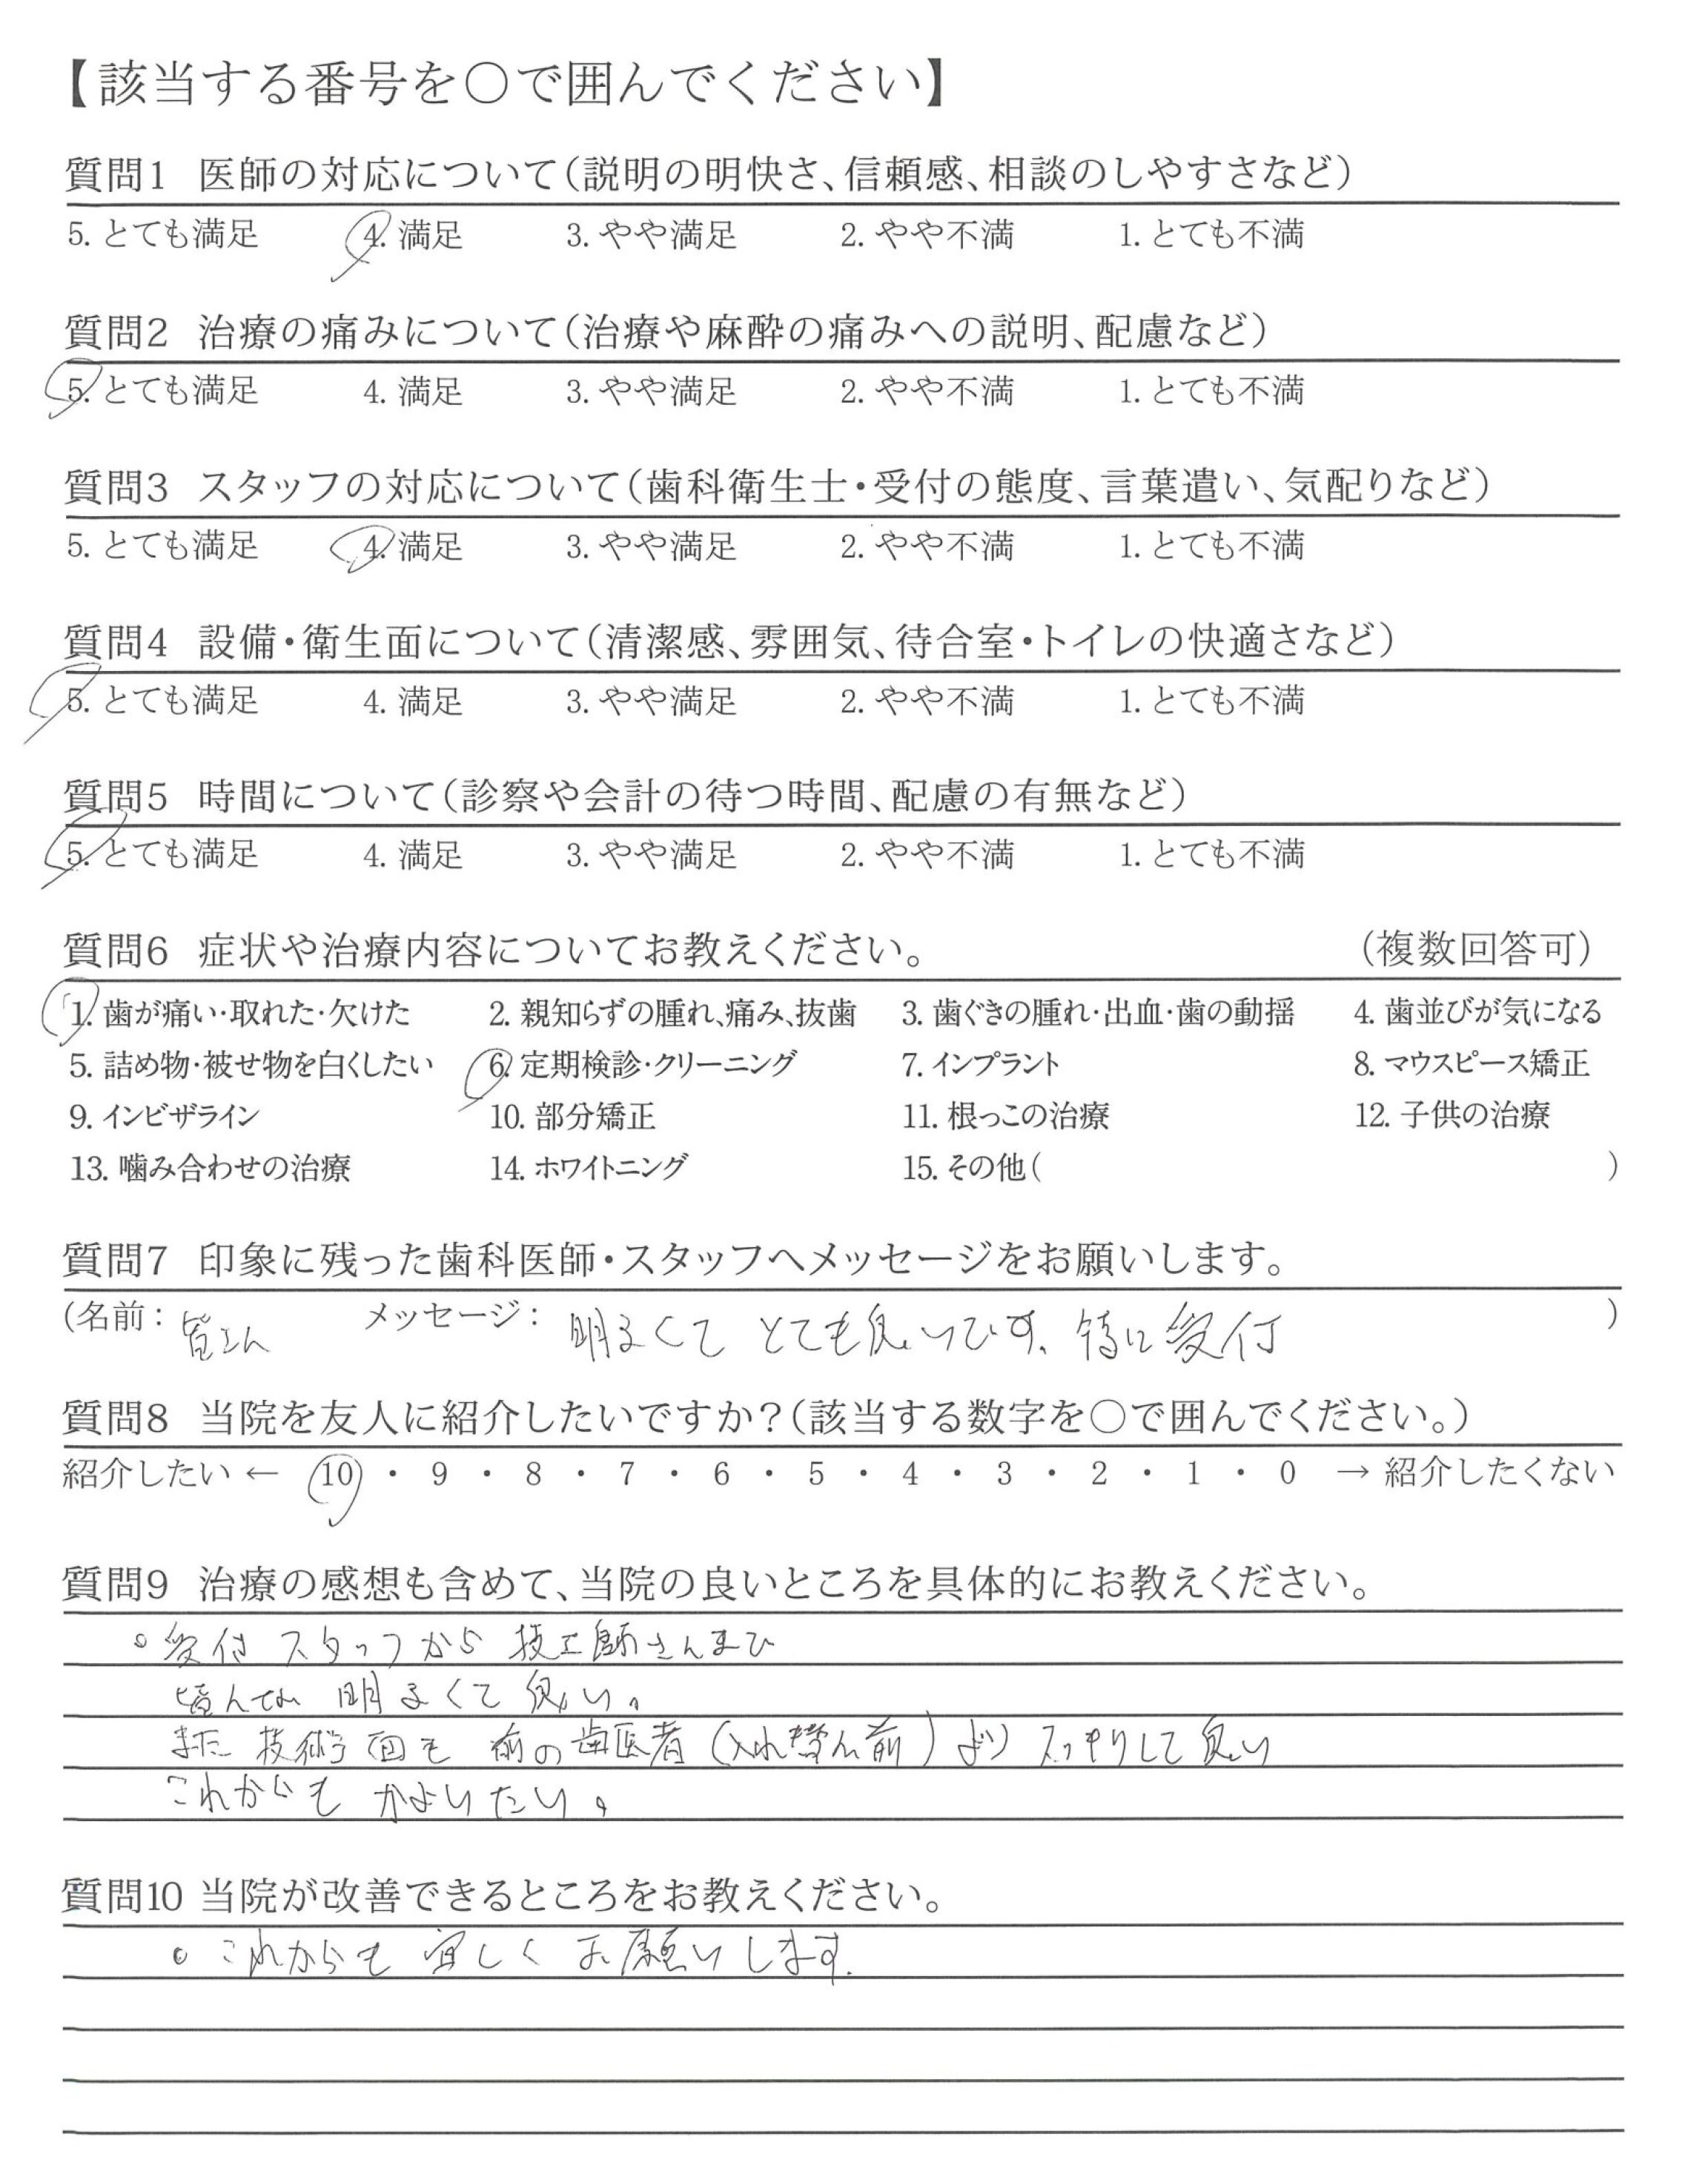 【該当する番号を○で囲んでください】
質問1 医師の対応について(説明の明快さ、信頼感、相談のしやすさなど)
5. とても満足 4. 満足 3. やや満足 2. やや不満 1. とても不満
質問2 治療の痛みについて(治療や麻酔の痛みへの説明、配慮など)
5. とても満足 4. 満足 3. やや満足 2. やや不満 1. とても不満
質問3 スタッフの対応について(歯科衛生士・受付の態度、言葉遣い、気配りなど)
5. とても満足 4. 満足 3. やや満足 2. やや不満 1. とても不満
質問4 設備・衛生面について(清潔感、雰囲気、待合室・トイレの快適さなど)
5. とても満足 4. 満足 3. やや満足 2. やや不満 1. とても不満
質問5 時間について(診察や会計の待つ時間、配慮の有無など)
5. とても満足 4. 満足 3. やや満足 2. やや不満 1. とても不満
質問6 症状や治療内容についてお教えください。 (複数回答可)
1. 歯が痛い・取れた・欠けた 2. 親知らずの腫れ、痛み、抜歯 3. 歯ぐきの腫れ・出血・歯の動揺 4. 歯並びが気になる
5. 詰め物・被せ物を白くしたい 6. 定期検診・クリーニング 7. インプラント 8. マウスピース矯正
9. インビザライン 10. 部分矯正 11. 根っこの治療 12. 子供の治療
13. 噛み合わせの治療 14. ホワイトニング 15. その他( )
質問7 印象に残った歯科医師・スタッフへメッセージをお願いします。
(名前: 皆さん メッセージ: 明るくて とても良いです、特に受付 )
質問8 当院を友人に紹介したいですか?(該当する数字を○で囲んでください。)
紹介したい ← 10 ・ 9 ・ 8 ・ 7 ・ 6 ・ 5 ・ 4 ・ 3 ・ 2 ・ 1 ・ 0 → 紹介したくない
質問9 治療の感想も含めて、当院の良いところを具体的にお教えください。
。受付スタッフから 技工師さんまで
皆んな 明るくて 良い。
また 技術面も 前の歯医者(入れ替え前)より スッキリして良い
これからも かよいたい。
質問10 当院が改善できるところをお教えください。
。これからも 宜しく お願いします.